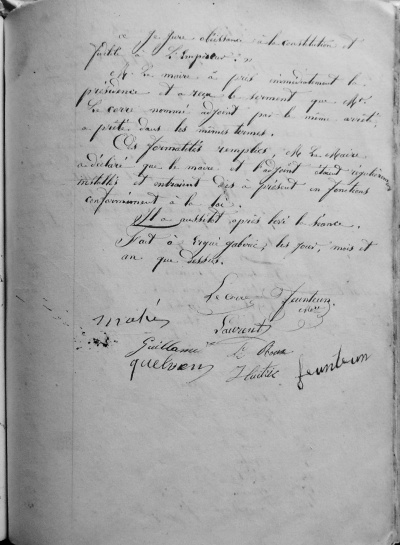 « Je jure obéissance à la constitution et
fidélité à L'Empereur. »
M. Le maire a pris immédiatement la
présidence et a reçu le serment que Mr.
Le corre nommé adjoint par le même arrêté
a prêté dans les mêmes termes.
Ces formalités remplies, M. Le Maire
a déclaré que le maire et l'adjoint étaient régulièrement
installés et entraient dès à présent en fonctions
conformément à la loi.
Il a aussitôt après levé la séance.
Fait à Ergué gabéric, les jour, mois et
an que dessus.
Le corre feunteun
maire
mahé
Laurent
Guillaume
quelven
feunteun